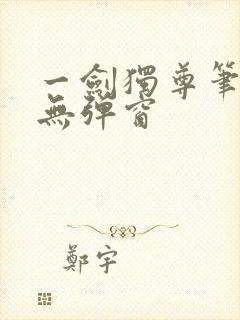 一劍獨尊筆
無彈窗
鄭宇